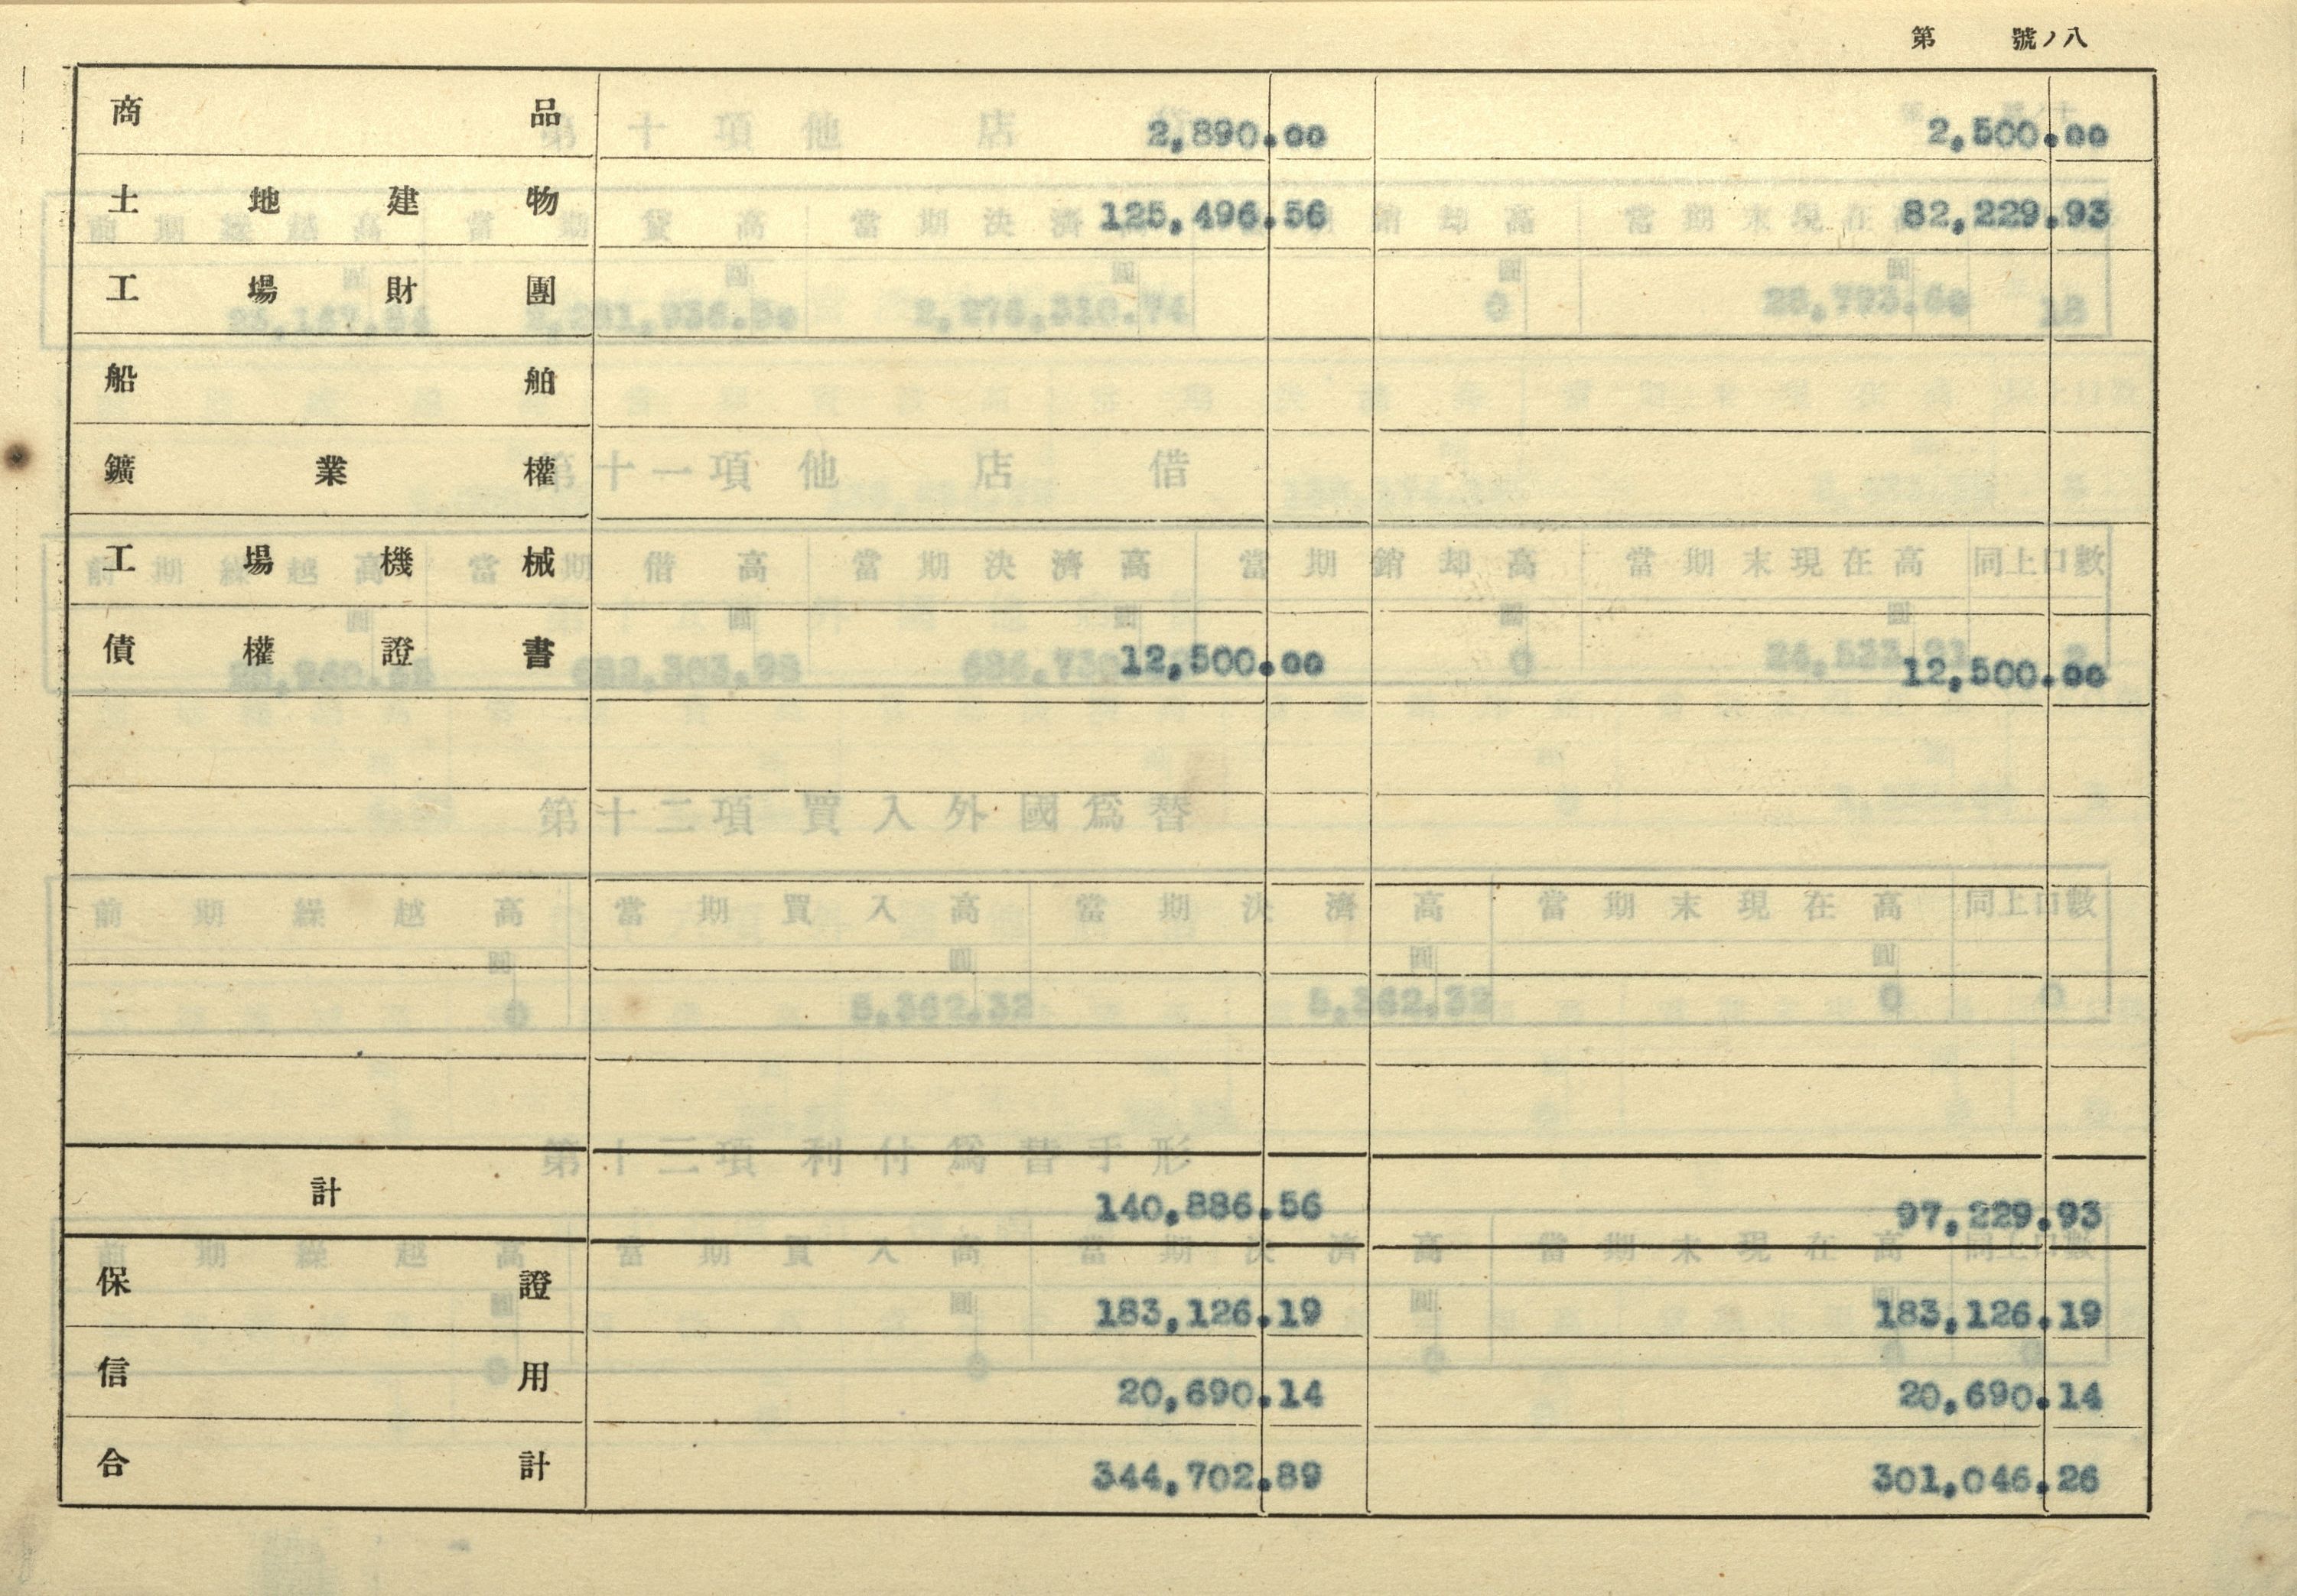 第 號ノ八
商品 2,890.00 2,500.00
土地建物 125,496.56 82,229.93
工場財團
船舶
鑛業權
工場機械
債權證書 12,500.00 12,500.00
計 140,886.56 97,229.93
保證 183,126.19 183,126.19
信用 20,690.14 20,690.14
合計 344,702.89 301,046.26